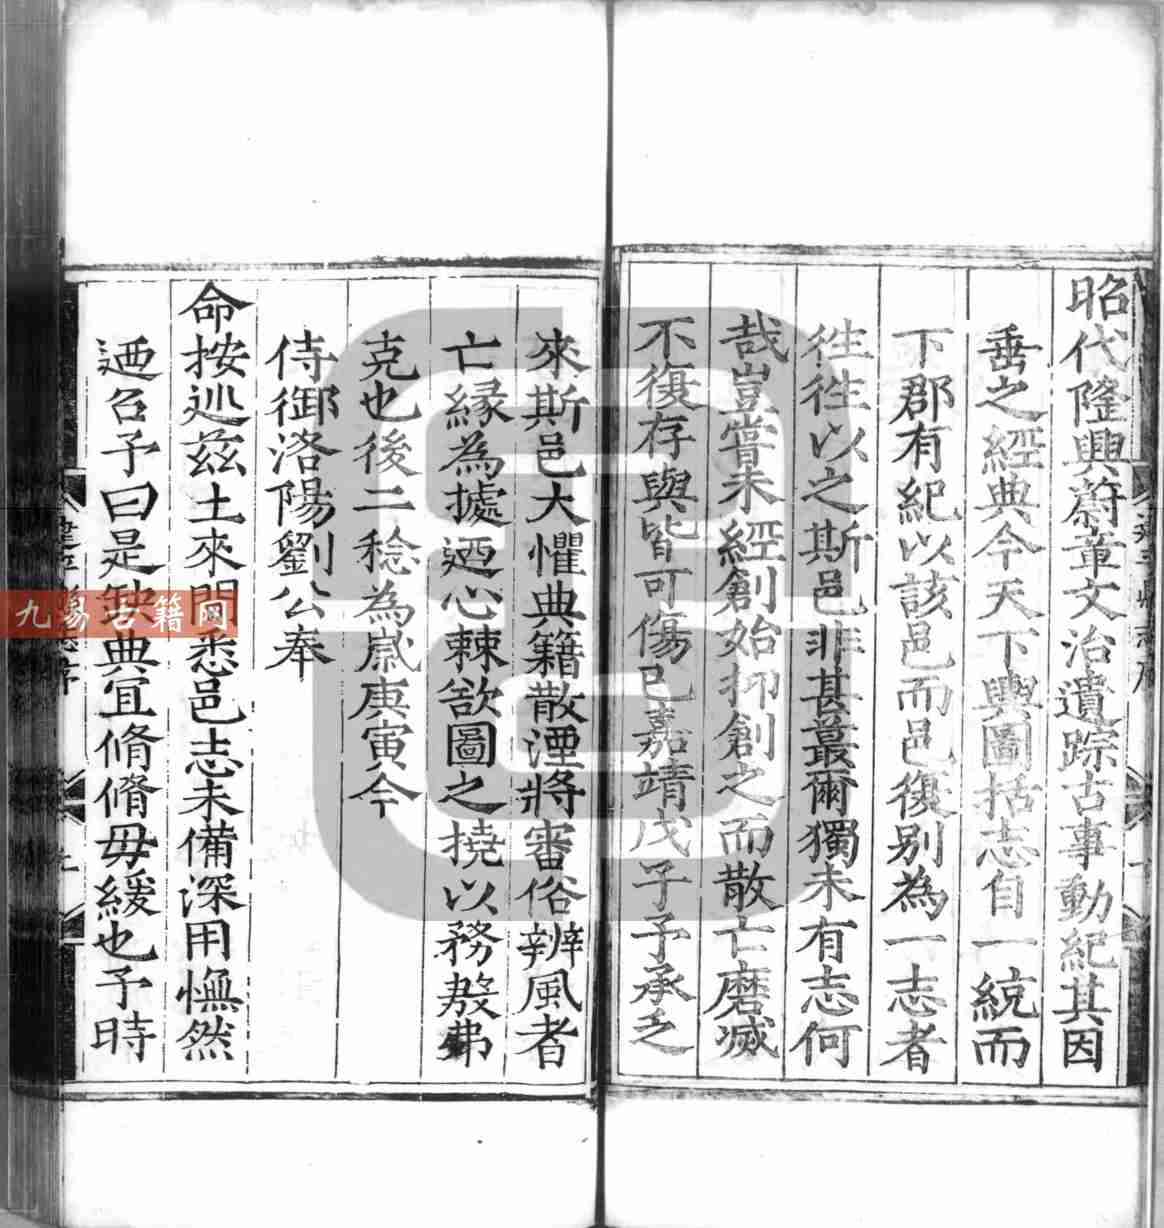 昭代隆興蔚章文治遺踪古事動紀其因
垂之經典今天下輿圖括志自一統而
下郡有紀以該邑而邑復別為一志者
徃徃以之斯邑非甚蕞爾獨未有志何
哉豈嘗未經創始抑創之而散亡磨滅
不復存與皆可傷已嘉靖戊子予承乏
來斯邑大懼典籍散湮將審俗辨風者
亡緣為據迺心棘欲圖之撓以務殷弗
克也後二稔為歲庚寅今
侍御洛陽劉公奉
命按廵茲土來問悉邑志未備深用憮然
迺召予曰是缺典宜脩脩毋緩也予時
九易古籍网